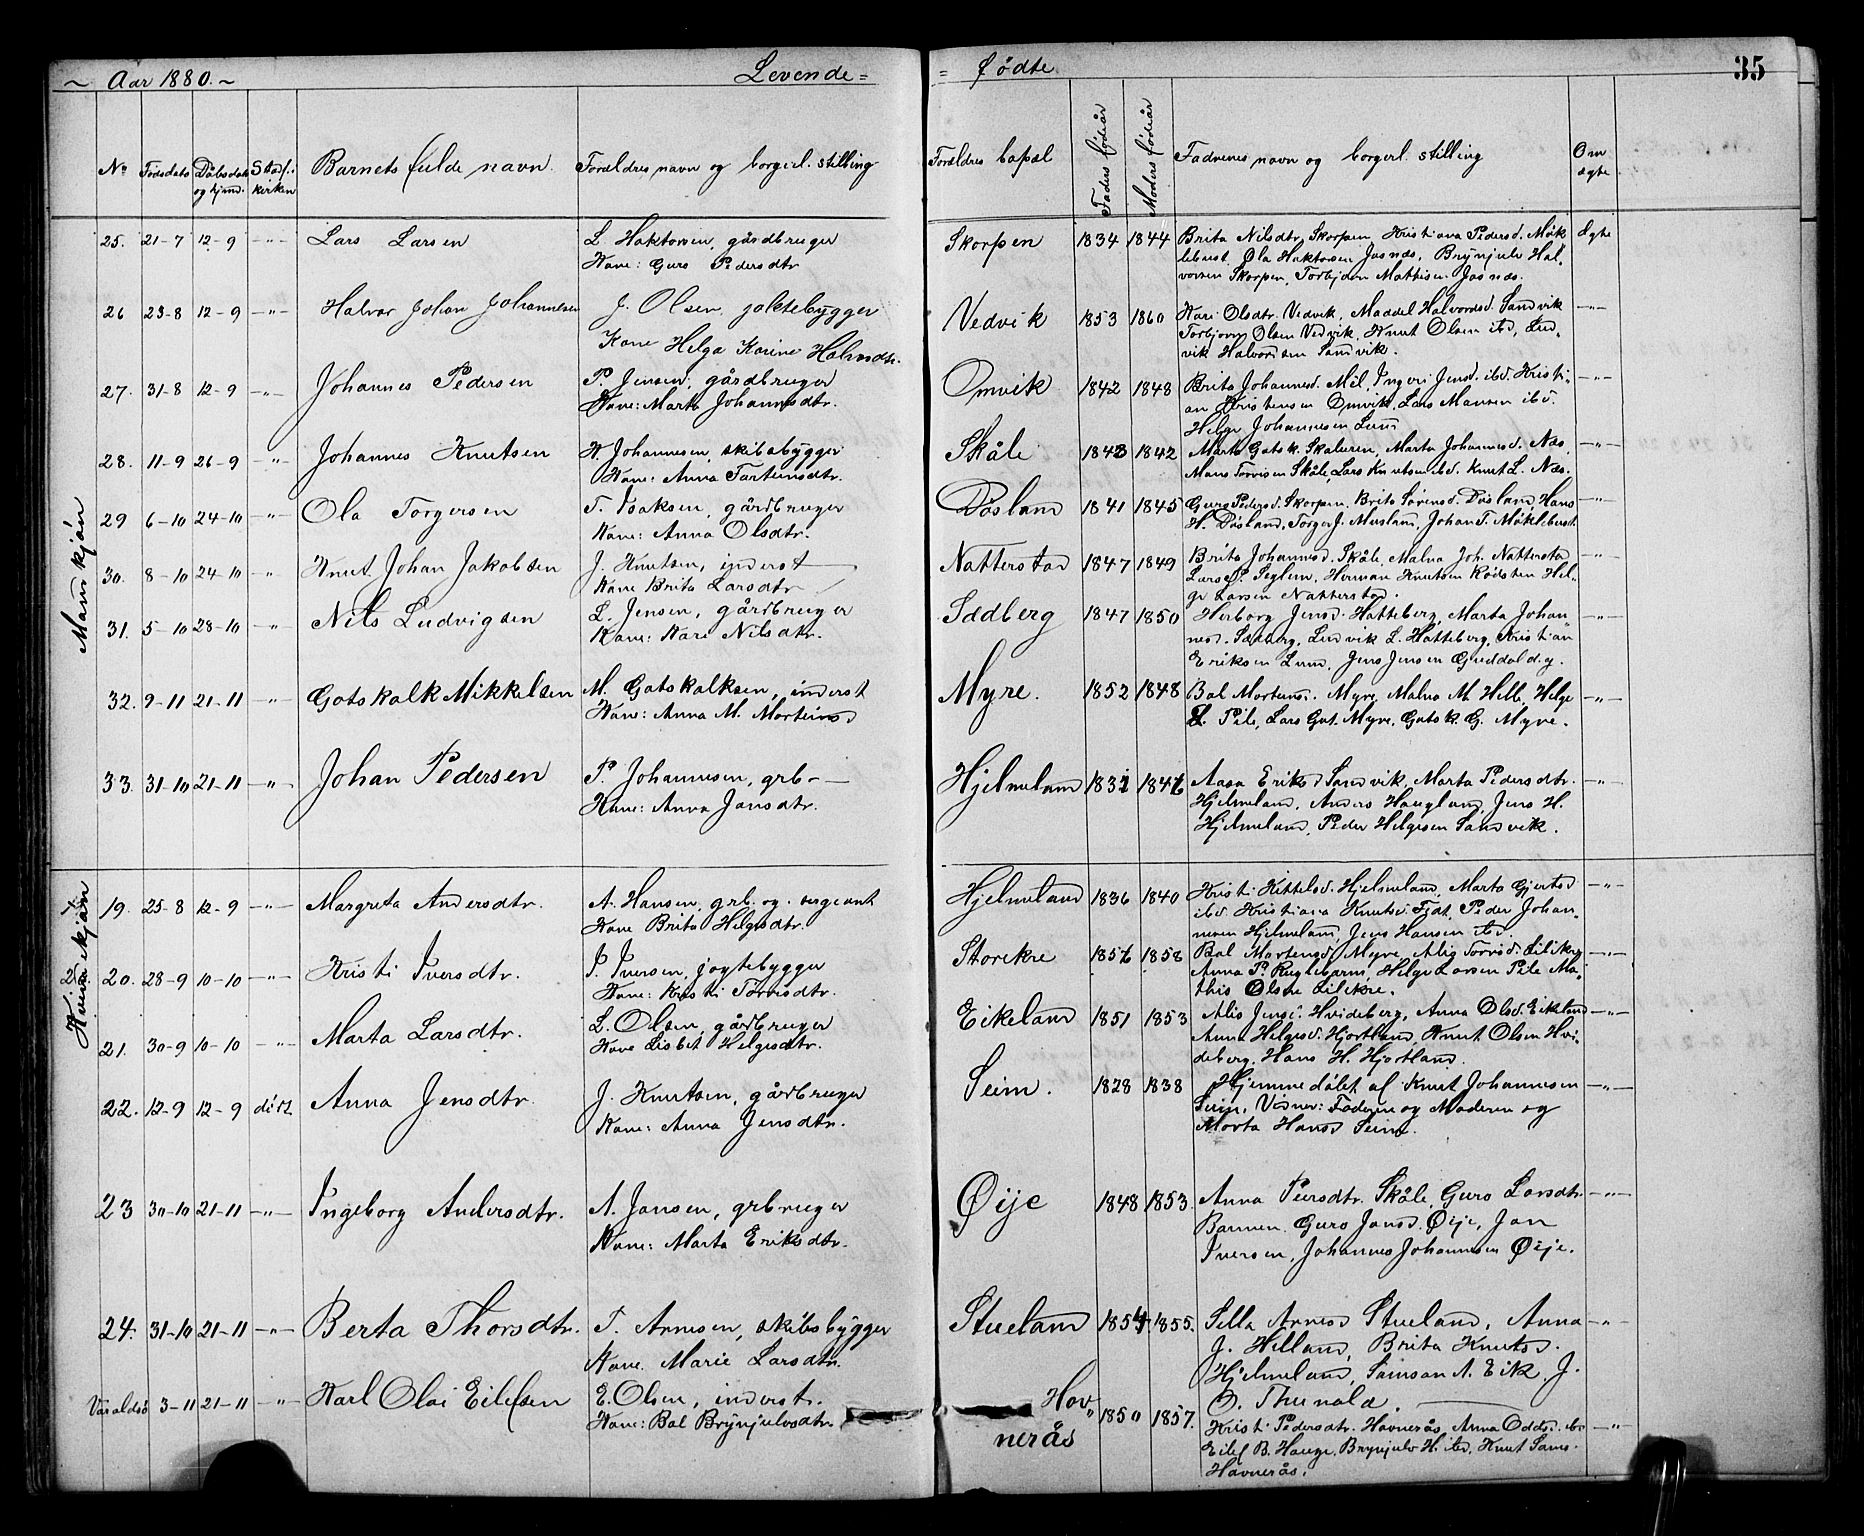 ~ Aar 1880. ~ Levende = = Fødte 35
No Fødsdato Dåbsdato og hjemd. Stadf. i kirken Barnets fulde navn. Forældres navn og borgerl. stilling Forældres bopæl Faders fødeår Moders fødeår Fadrenes navn og borgerl. stilling Om ægte
Mannkjøn
25. 21-7 12-9 -"- Lars Larsen L. Haktorsen, gårdbruger Skorpen 1834 1844 Brita Nilsdtr. Skorpen, Kristiana Pedersd. Møk Ægte
Kone: Guro Pedersdtr. lebust, Ola Haktorsen Jasnæs, Brynjulv Hal-
vorsen Skorpen, Torbjørn Mathisen Jasnæs.
26 23-8 12-9 -"- Halvor Johan Johannesen J. Olsen, jaktebygger Vedvik 1853 1860 Kari Olsdtr. Vedvik, Maddel Halvorsd. Sandvik -"-
Kone Helga Karine Halvordtr. Torbjørn Olsen Vedvik, Knut Olsen ibd, Lud-
vik Halvordsen Sandvik.
27. 31-8 12-9 -"- Johannes Pedersen P. Jensen, gårdbruger Omvik 1842 1848 Brita Johannesd. Mel, Ingeri Jensd. ibd. Kristi- -"-
Kone: Marta Johannesdtr. an Kristensen Omvik, Lars Mansen ibd.
Helge Johannesen Lund
28. 11-9 26-9 -"- Johannes Knutsen K. Johannesen, skibsbygger Skåle 1843 1842 Marta Gotsk. Skaluren, Marta Johannesd. Næs, -"-
Kone: Anna Torteinsdtr. Mans Torvisen Skåle, Lars Knutsen ibd. Knut L. Næs.
29 6-10 24-10 -"- Ola Torgersen T. Isaksen, gårdbruger Døsland 1841 1845 Guro Pedersd. Skorpen, Brita Sørensd. Døsland, Hans -"-
Kone: Anna Olsdtr. H. Døsland, Torger J. Musland, Johan T. Møklebust.
30. 8-10 24-10 -"- Knut Johan Jakobsen J. Knutsen, inderst Nattersta 1847 1849 Brita Johannesd. Skåle, Malna Joh. Nattersta -"-
Kone Brita Larsdtr. Lars P. Seglem, Herman Knutsen Hel-
ge Larsen Nattersta.
31. 5-10 28-10 -"- Nils Ludvigsen L. Jensen, gårdbruger Sædberg 1847 1850 Herborg Jensd. Hatteberg, Marta Johan- -"-
Kone: Kari Nilsdtr. nesd. Sædberg, Ludvik L. Hatteberg, Kristian
Eriksen Lund, Jens Jensen Guddal d.y.
32. 9-11 21-11 -"- Gotskalk Mikkelsen M. Gotskalksen, inderst Myre. 1852 1848 Bol Mortensd. Myre, Malna M. Helle, Helge -"-
Kone: Anna M. Morteinsd L. Pile, Lars Got. Myre, Gotsk. G. Myre.
33. 31-10 21-11 -"- Johan Pedersen P. Johannesen, grb. Hjelmeland 1831 1846 Aasa Eriksd Sandvik, Marta Pedersdtr. -"-
Kone: Anna Jansdtr. Hjelmeland, Anders Haugland, Jens H.
Hjelmeland, Peder Helgesen Sandvik.
Kvindekjøn
19. 25-8 12-9 -"- Margreta Andersdtr. A. Hansen, grb. og sergeant Hjelmeland 1836 1840 Kristi Kittelsd. Hjelmeland, Marta Gjertsd -"-
Kone Brita Helgesdtr. ibd. Kristiana Knutsd. Fjdt, Peder Johan-
nesen Hjelmeland, Jens Hansen ibd.
20. 28-9 10-10 -"- Kristi Iversdtr. I. Iversen, jagtebygger Storekre 1856 1858 Bol Mortensd. Myre, Alis Torvisd. Lilekre, -"-
Kone: Kristi Torvisdtr. Anna P. Rugtebarm, Helge Larsen Pile Ma-
this Olsen Lilekre.
21. 30-9 10-10 -"- Marta Larsdtr. L. Olsen, gårdbruger Eikeland 1851 1853 Alis Jensd. Hvideberg, Anna Olsd. Eikeland -"-
Kone Lisbet Helgesdtr. Anna Helgesd. Hjortland, Knut Olsen Hvi-
deberg, Hans H. Hjortland.
22. 12-9 12-9 dødt Anna Jensdtr. J. Knutsen, gårdbruger Seim. 1828 1838 Hjemmedøbt af Knut Johannesen -"-
Kone: Anna Jensdtr. Seim, Vidner: Faderen og Moderen og
Marta Hansd Seim.
23 30-10 21-11 -"- Ingeborg Andersdtr. A. Jansen, grbruger Øije 1848 1853. Anna Peersdtr. Skåle, Guro Larsdtr. -"-
Kone: Marta Eriksdtr. Barmen, Guro Jansd. Øije, Jan
Iversen, Johannes Johannesen Øije.
24. 31-10 21-11 -"- Berta Thorsdtr. T. Arnesen, skibsbygger Stueland 1854 1855. Sella Arnesd Stueland, Anna -"-
Kone. Marie Larsdtr. J. Helland, Brita Knutsd.
Hjelmeland, Samson A. Eik, J.
O. Thunald.
Varaldsø 3-11 21-11 -"- Karl Olai Eilefsen E. Olsen, inderst. Hav- 1850 1857. Kristi Pedersdtr. Havnerås, Anna Oddsd. ibd -"-
Kone: Bol Brynjulvsdtr. nerås Eilef B. Hauge, Brynjulv H. ibd, Knut Sams.
Havnerås.